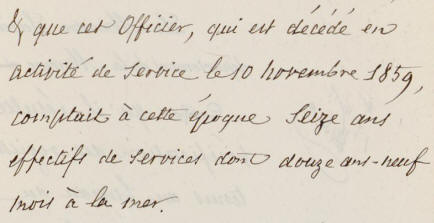 & que cet Officier, qui est décédé en
activité de service le 10 novembre 1859,
comptait à cette époque Seize ans
effectifs de services dont douze ans-neuf
mois à la mer.